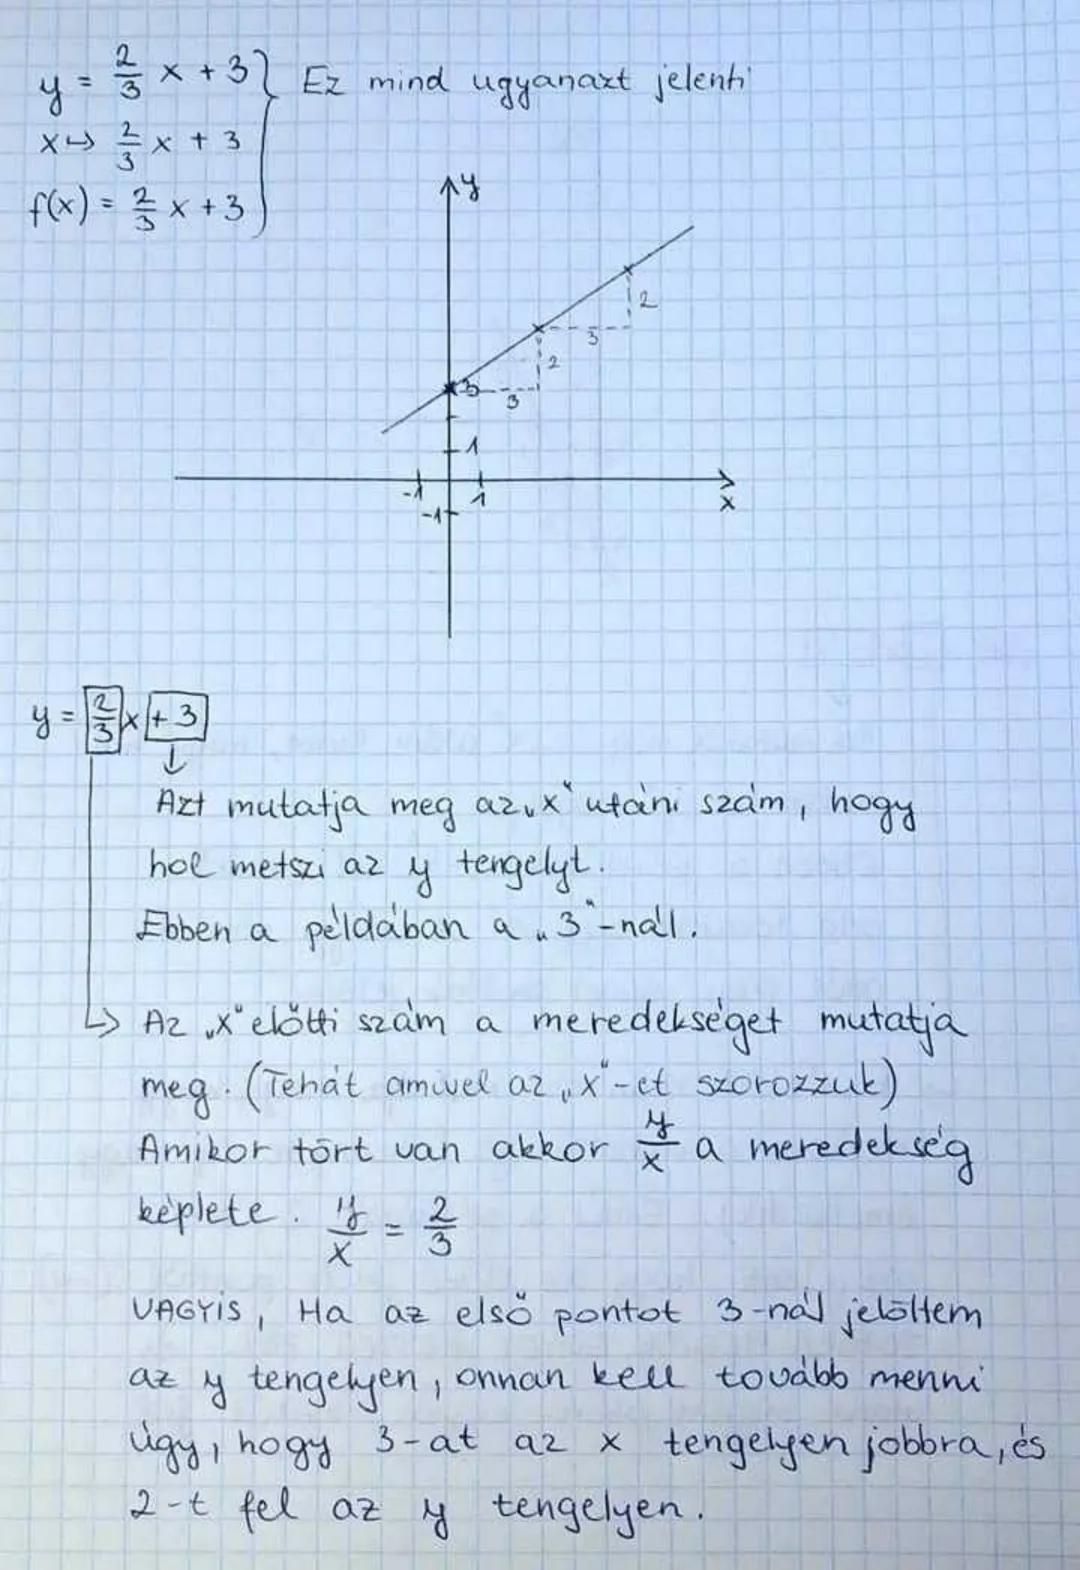 y = 2/3 x + 3 } Ez mind ugyanazt jelenti
x ↦ 2/3 x + 3
f(x) = 2/3 x + 3
y
2
3
2
3
3
1
-1 1
x
-1
y = 2/3 x + 3
↓
Azt mutatja meg az „x" utáni szám, hogy
hol metszi az y tengelyt.
Ebben a példában a „3"-nál.
→ Az „x" előtti szám a meredekséget mutatja
meg. (Tehát amivel az „x"-et szorozzuk)
Amikor tört van akkor y/x a meredekség
képlete. y/x = 2/3
VAGYIS, Ha az első pontot 3-nál jelöltem
az y tengelyen, onnan kell tovább menni
úgy, hogy 3-at az x tengelyen jobbra, és
2-t fel az y tengelyen.